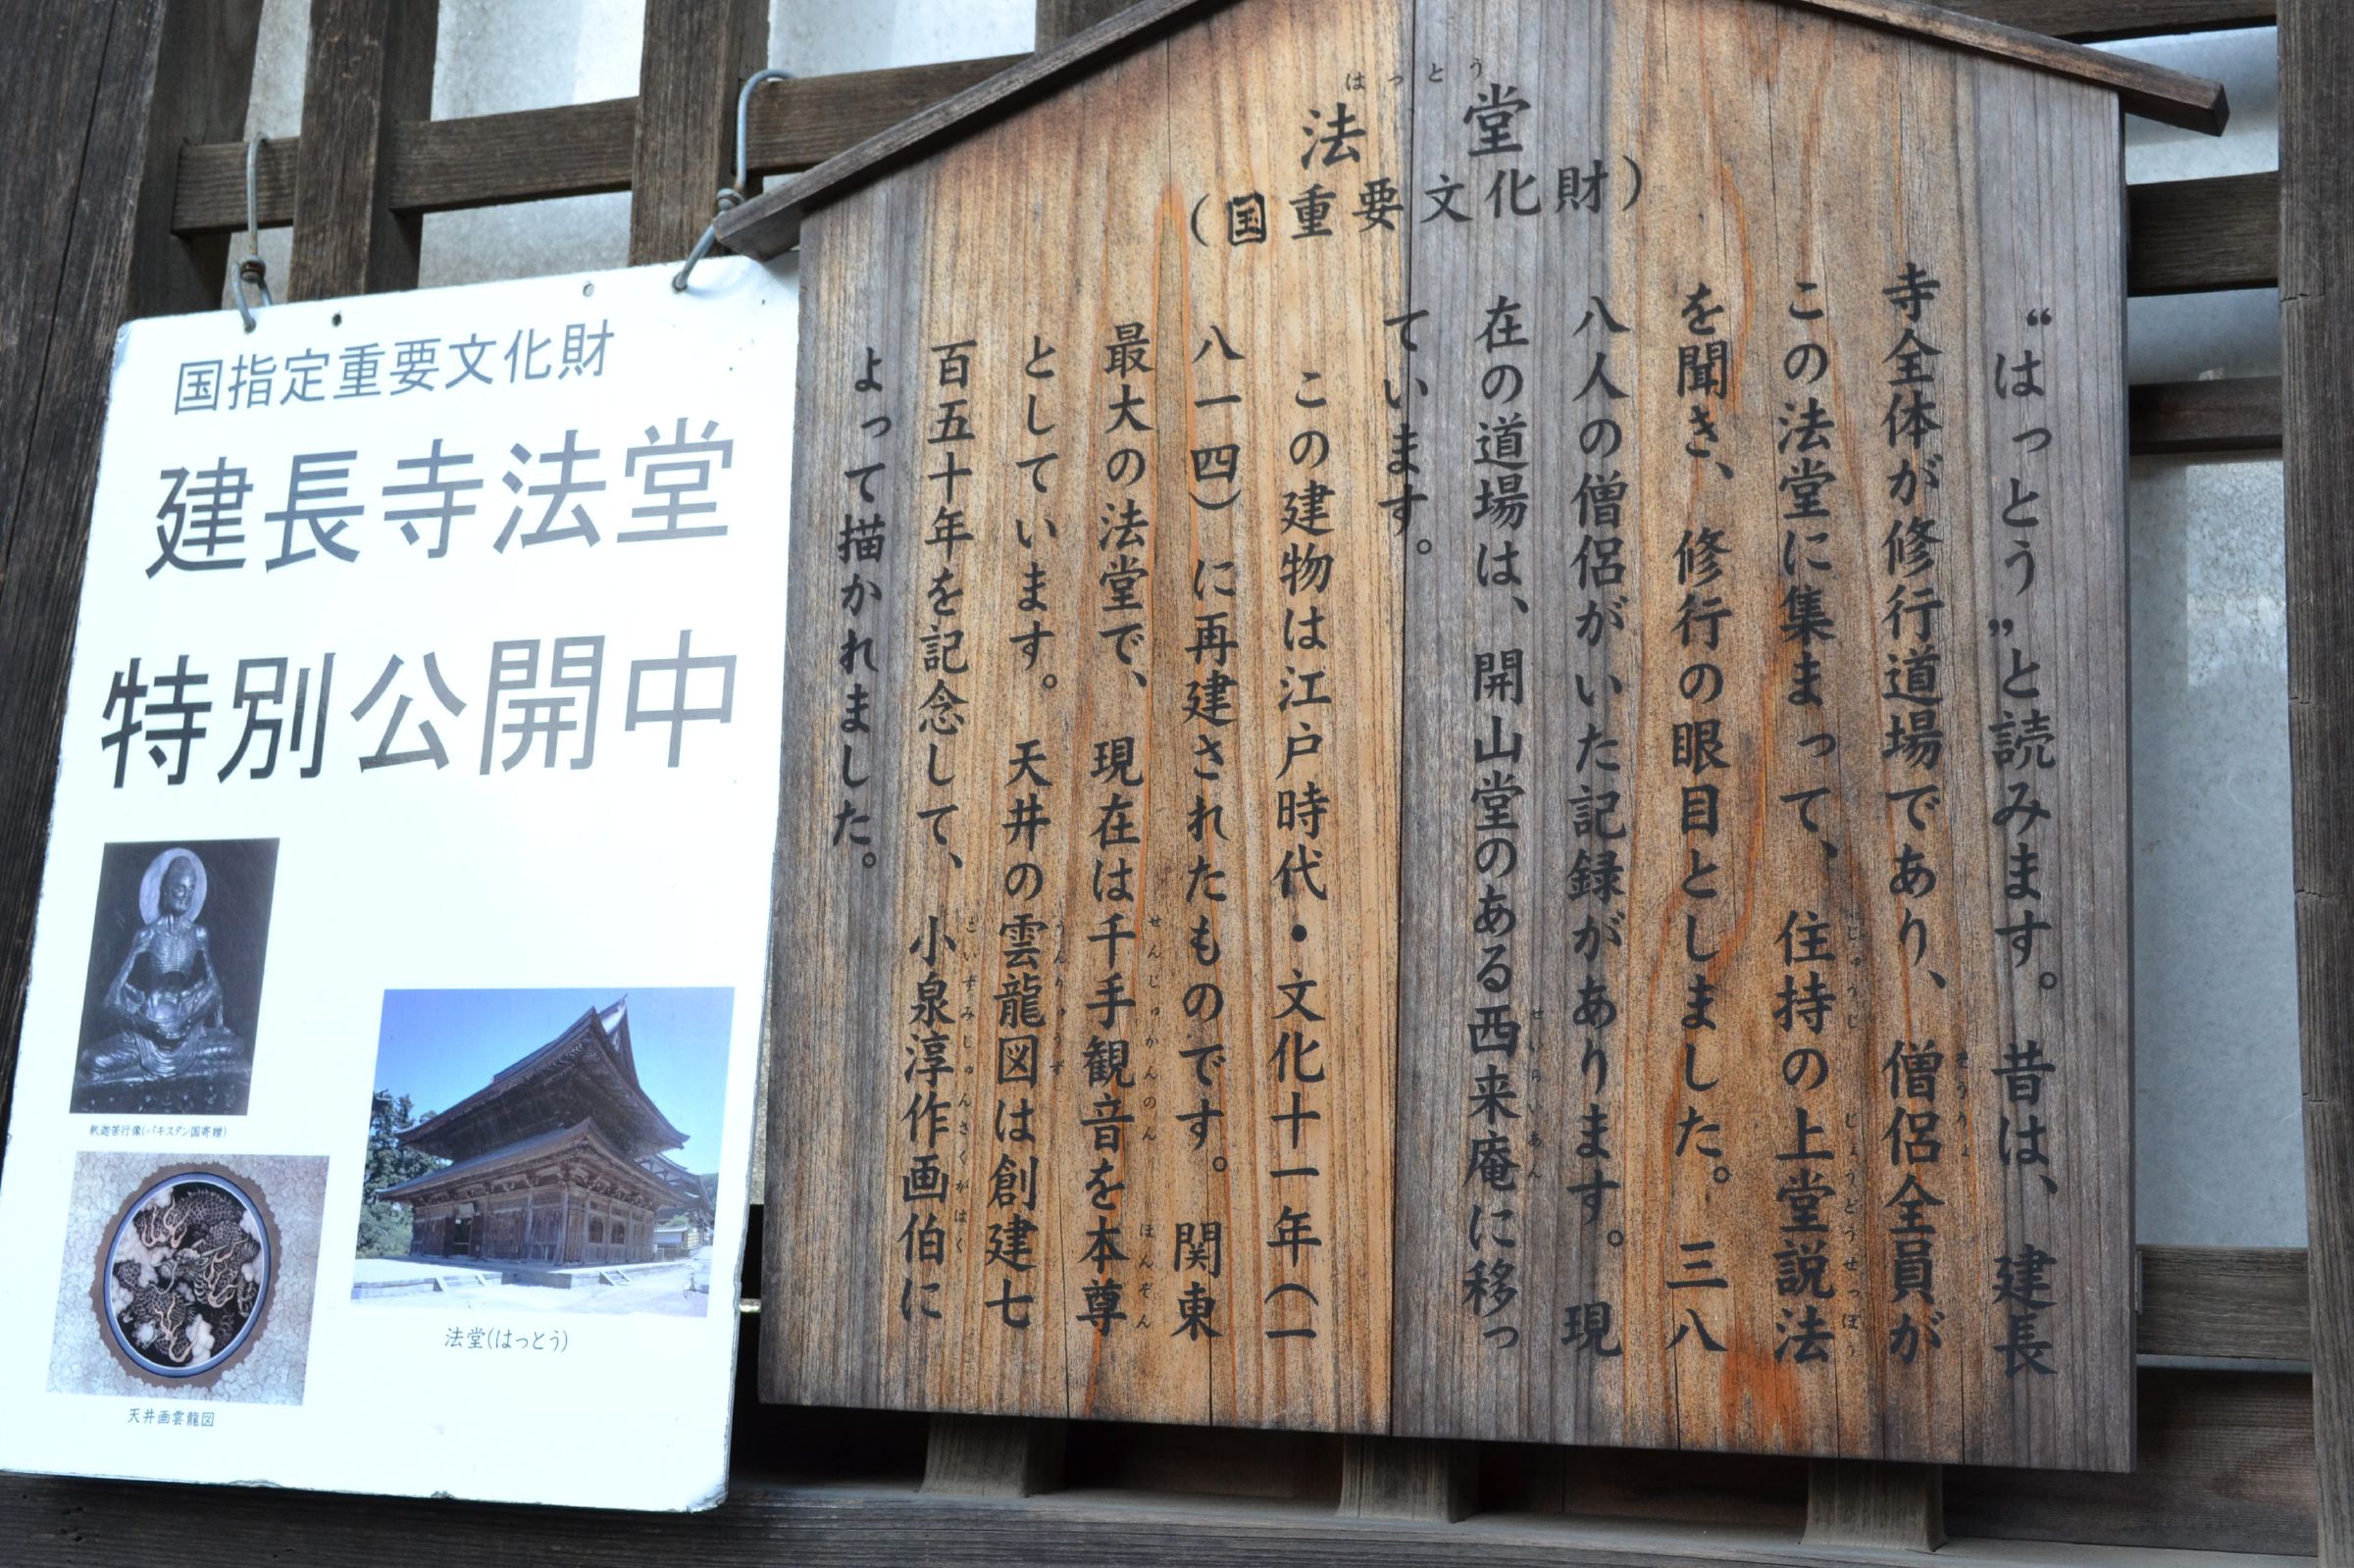 法堂
はっとう
(国重要文化財)
“はっとう”と読みます。昔は、建長
寺全体が修行道場であり、僧侶全員が
そうりょ
この法堂に集まって、住持の上堂説法
じゅうじ じょうどうせっぽう
を聞き、修行の眼目としました。三八
八人の僧侶がいた記録があります。現
在の道場は、開山堂のある西来庵に移っ
せいらいあん
ています。
この建物は江戸時代・文化十一年(一
八一四)に再建されたものです。関東
最大の法堂で、現在は千手観音を本尊
せんじゅかんのん ほんぞん
としています。天井の雲龍図は創建七
うんりゅうず
百五十年を記念して、小泉淳作画伯に
こいずみじゅんさくがはく
よって描かれました。
国指定重要文化財
建長寺法堂
特別公開中
釈迦苦行像(パキスタン国寄贈)
法堂(はっとう)
天井画雲龍図